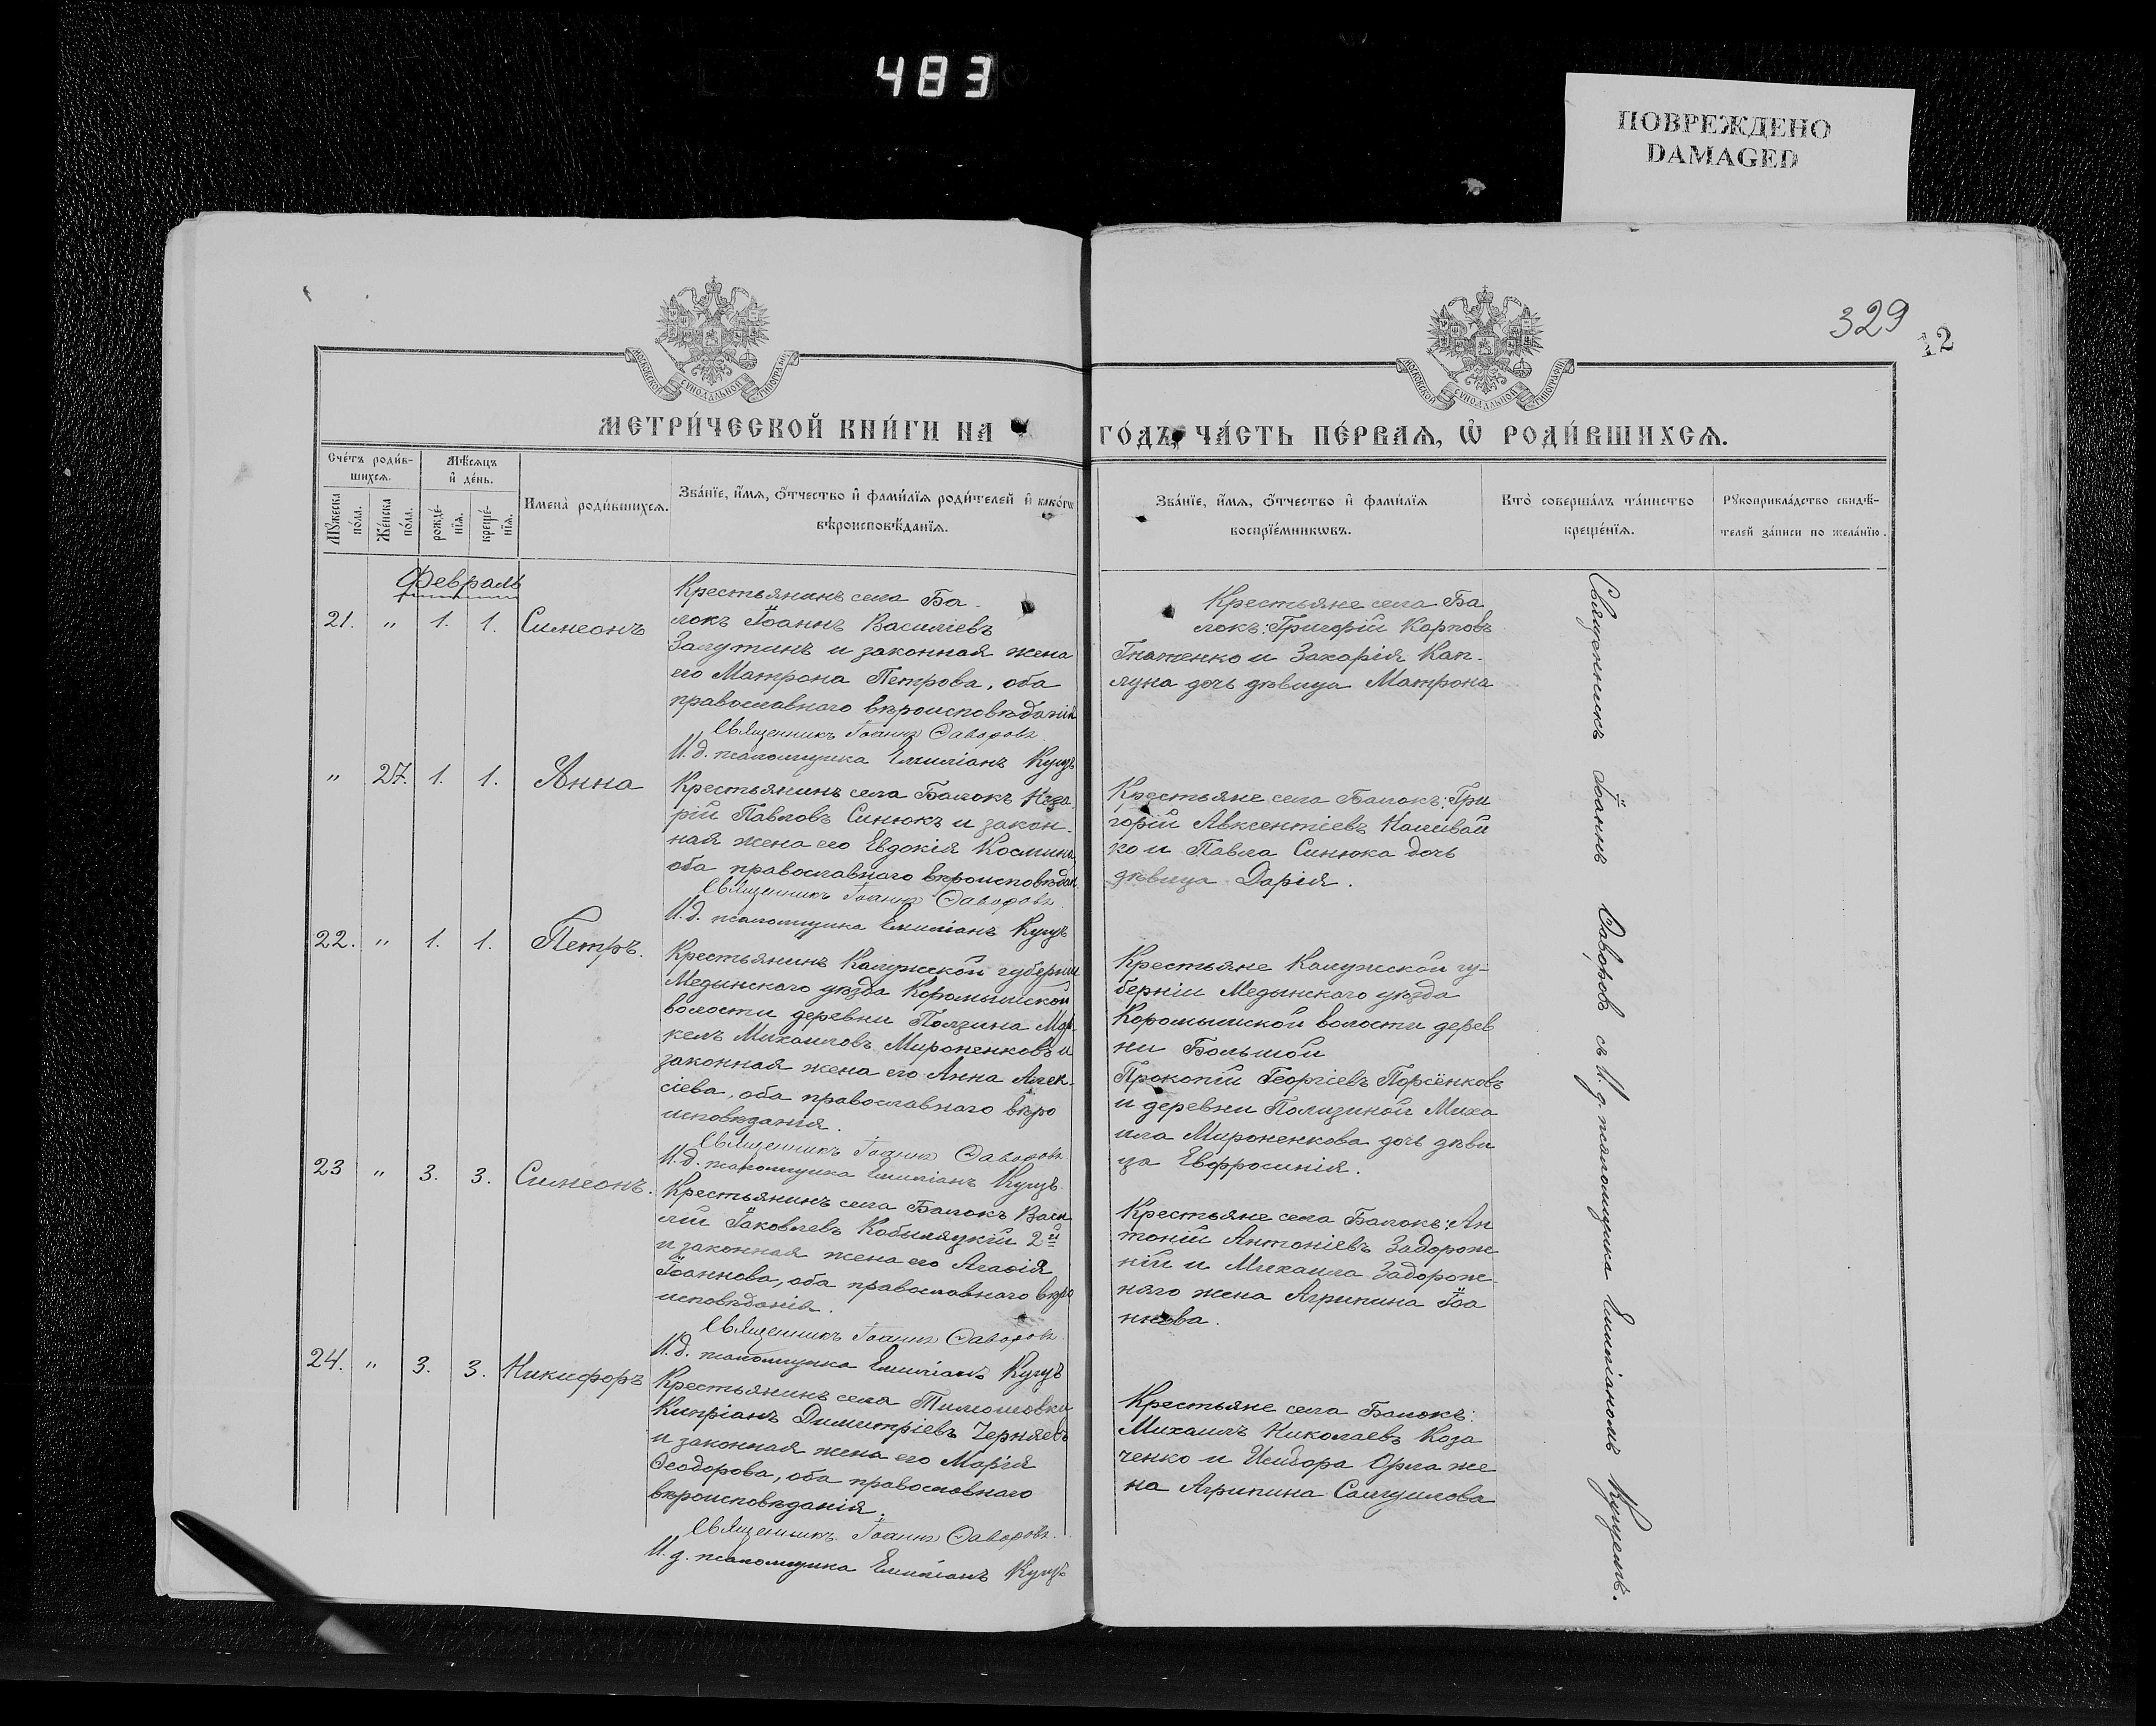 483
ПОВРЕЖДЕНО
DAMAGED
329
12
МОСКОВСКОЙ СѴНОДАЛЬНОЙ ТИПОГРАФІИ
МОСКОВСКОЙ СѴНОДАЛЬНОЙ ТИПОГРАФІИ
МЕТРИ́ЧЕСКОЙ КНИ́ГИ НА
ГО́ДЪ, ЧА́СТЬ ПЕ́РВАѦ, Ѡ҆ РОДИ́ВШИХСѦ.
Сче́тъ роди́в-
шихсѧ.
Мꙋ́жеска
по́ла.
Же́нска
по́ла.
Мѣ́сѧцъ
и҆ де́нь.
рожде́-
нїѧ.
креще́-
нїѧ.
Имена̀ роди́вшихсѧ.
Зва́нїе, и҆́мѧ, ѻ҆́тчество и҆ фами́лїѧ роди́телей и҆ како́гѡ
вѣроисповѣ́данїѧ.
Зва́нїе, и҆́мѧ, ѻ҆́тчество и҆ фами́лїѧ
воспрїе́мникѡвъ.
Кто̀ соверша́лъ та́инство
креще́нїѧ.
Рꙋкоприкла́дство свидѣ́-
телей за́писи по жела́нїю.
Февраль
21. " 1. 1. Симеонъ
Крестьянинъ села Ба-
локъ Іоаннъ Василіевъ
и законная жена
его Матрона Петрова, оба
православнаго вѣроисповѣданія
Священникъ Іоаннъ Ѳаворовъ
И. д. псаломщика Емиліанъ Куцъ
Крестьяне села Ба
локъ: Григорій Карповъ
Гнатенко и Захарія Кап-
луна дочь дѣвица Матрона
" 27. 1. 1. Анна
Крестьянинъ села Балокъ Наза
рій Павловъ Синюкъ и закон-
ная жена его Евдокія Космина,
оба православнаго вѣроисповѣдан.
Священникъ Іоаннъ Ѳаворовъ
И. д. псаломщика Емиліанъ Куцъ
Крестьяне села Балокъ: Гри
горій Авксентіевъ Наливай
ко и Павла Синюка дочь
дѣвица Дарія.
22. " 1. 1. Петръ.
Крестьянинъ Калужской губерніи
Медынскаго уѣзда Коромышской
волости деревни
Михаиловъ Мироненковъ и
законная жена его Анна Алек-
сіева, оба православнаго вѣро
исповѣданія.
Священникъ Іоаннъ Ѳаворовъ
И. д. псаломщика Емиліанъ Куцъ
Крестьяне Калужской гу-
берніи Медынскаго уѣзда
Коромышской волости дерев
ни Большой
Прокопій Георгіевъ
и деревни Михаи
ила Мироненкова дочь дѣви
ца Евфросинія.
23 " 3. 3. Симеонъ.
Крестьянинъ села Балокъ Васи
лій Іаковлевъ Кобыляцкій 2й
и законная жена его Агаѳія
Іоаннова, оба православнаго вѣро
исповѣданія.
Священникъ Іоаннъ Ѳаворовъ
И. д. псаломщика Емиліанъ Куцъ
Крестьяне села Балокъ: Ан
тоній Антоніевъ Задорож
ній и Михаила Задорож-
няго жена Агрипина Іоа
ннова.
24. " 3. 3. Никифоръ
Крестьянинъ села Тимошовки
Кипріанъ Димитріевъ Черняевъ
и законная жена его Марія
Ѳеодорова, оба православнаго
вѣроисповѣданія.
Священникъ Іоаннъ Ѳаворовъ
И. д. псаломщика Емиліанъ Куцъ
Крестьяне села Балокъ:
Михаилъ Николаевъ Коза
ченко и Исидора Орла же
на Агрипина Самуилова
Священникъ Іоаннъ Ѳаворовъ съ И. д. псаломщика Емиліаномъ Куцемъ.